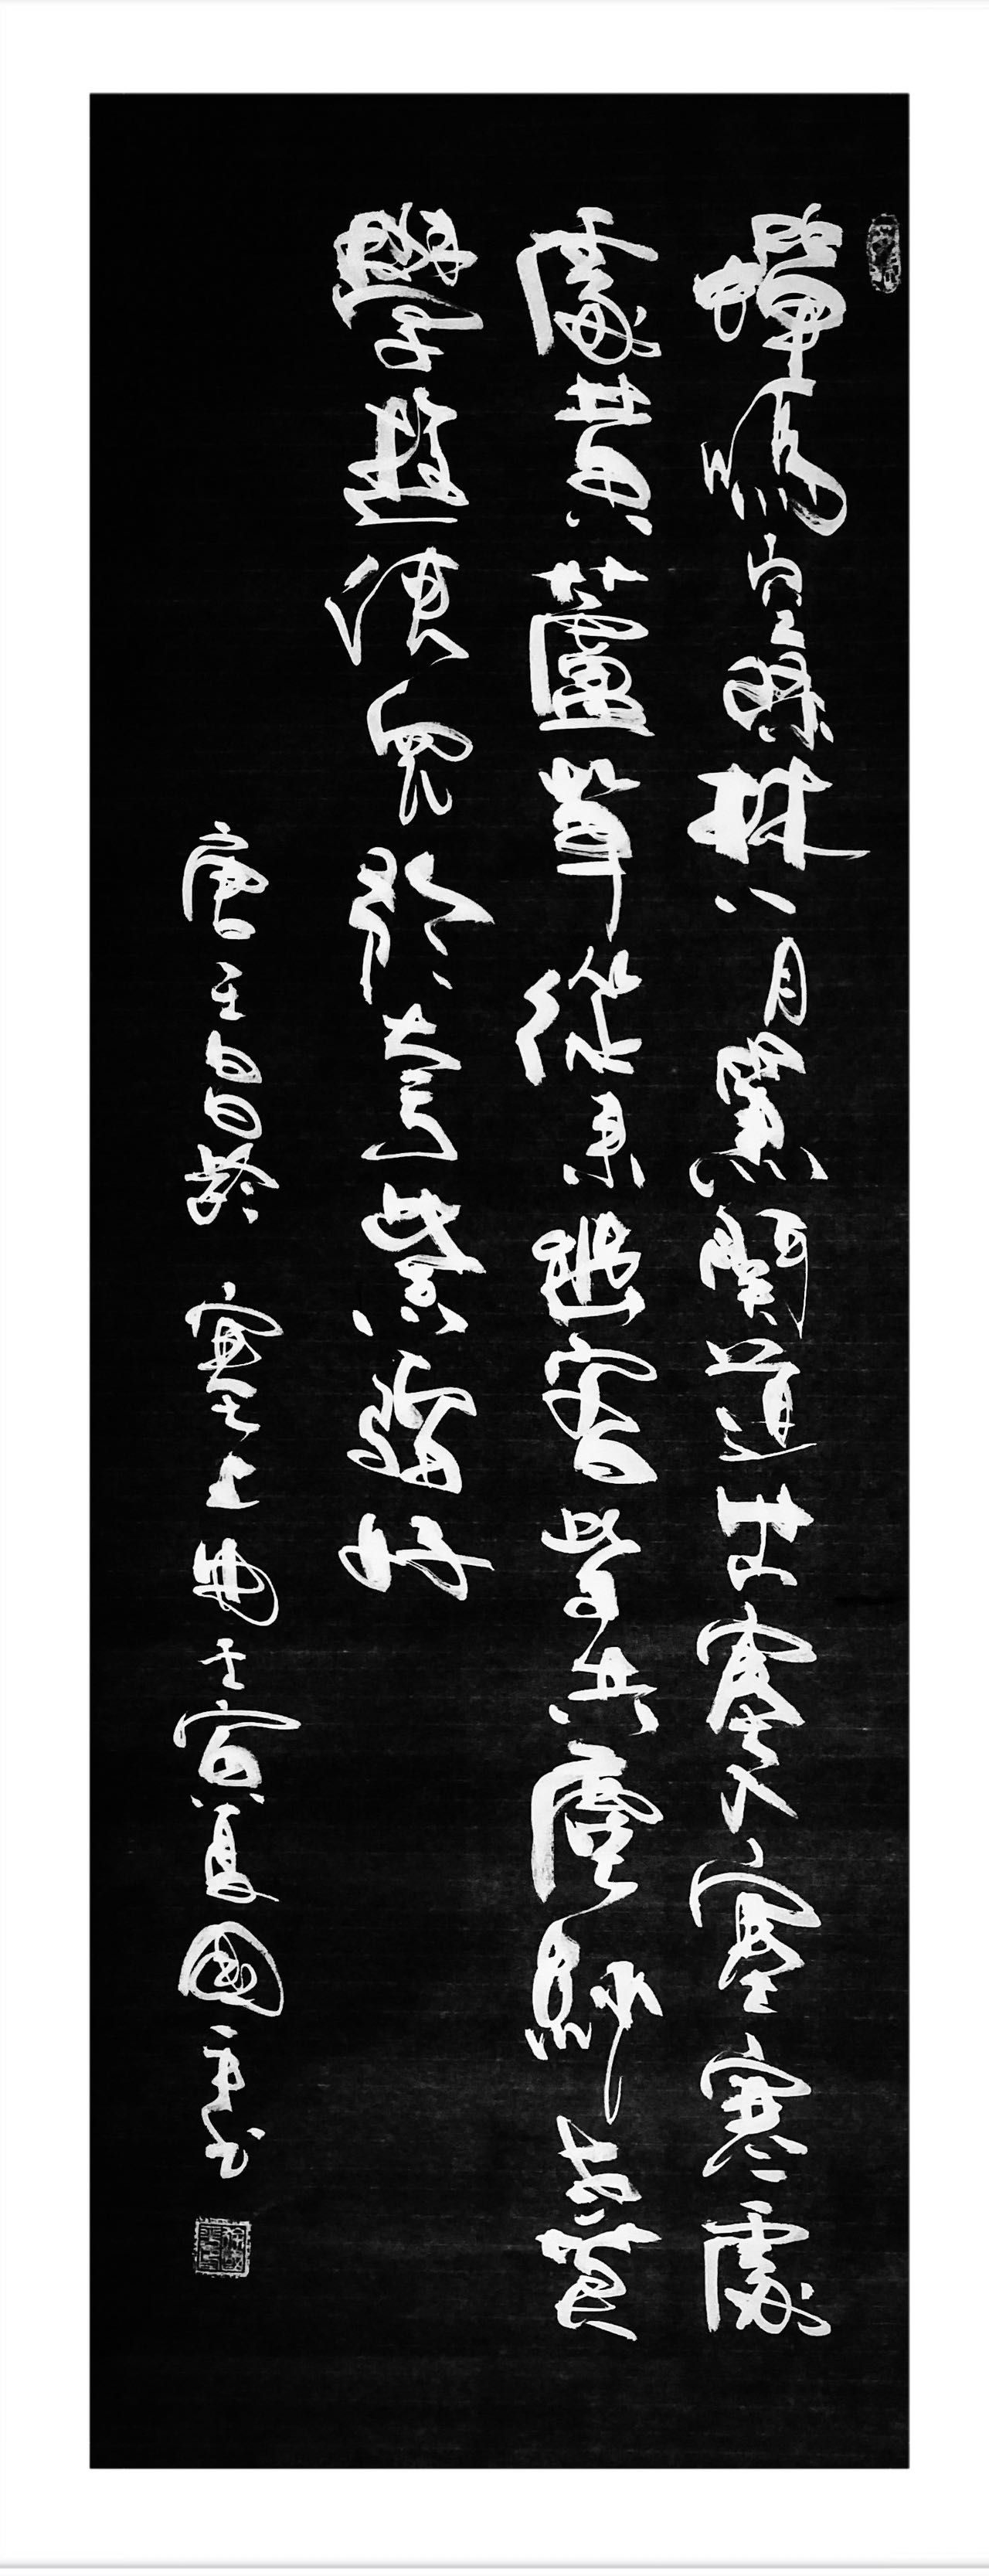 蟬鳴空桑林八月蕭關道出塞入塞寒處
處黃蘆草從來幽客皆共塵沙老莫
學遊俠兒矜夸紫騮好
唐王昌齡 塞上曲 壬寅夏國平书